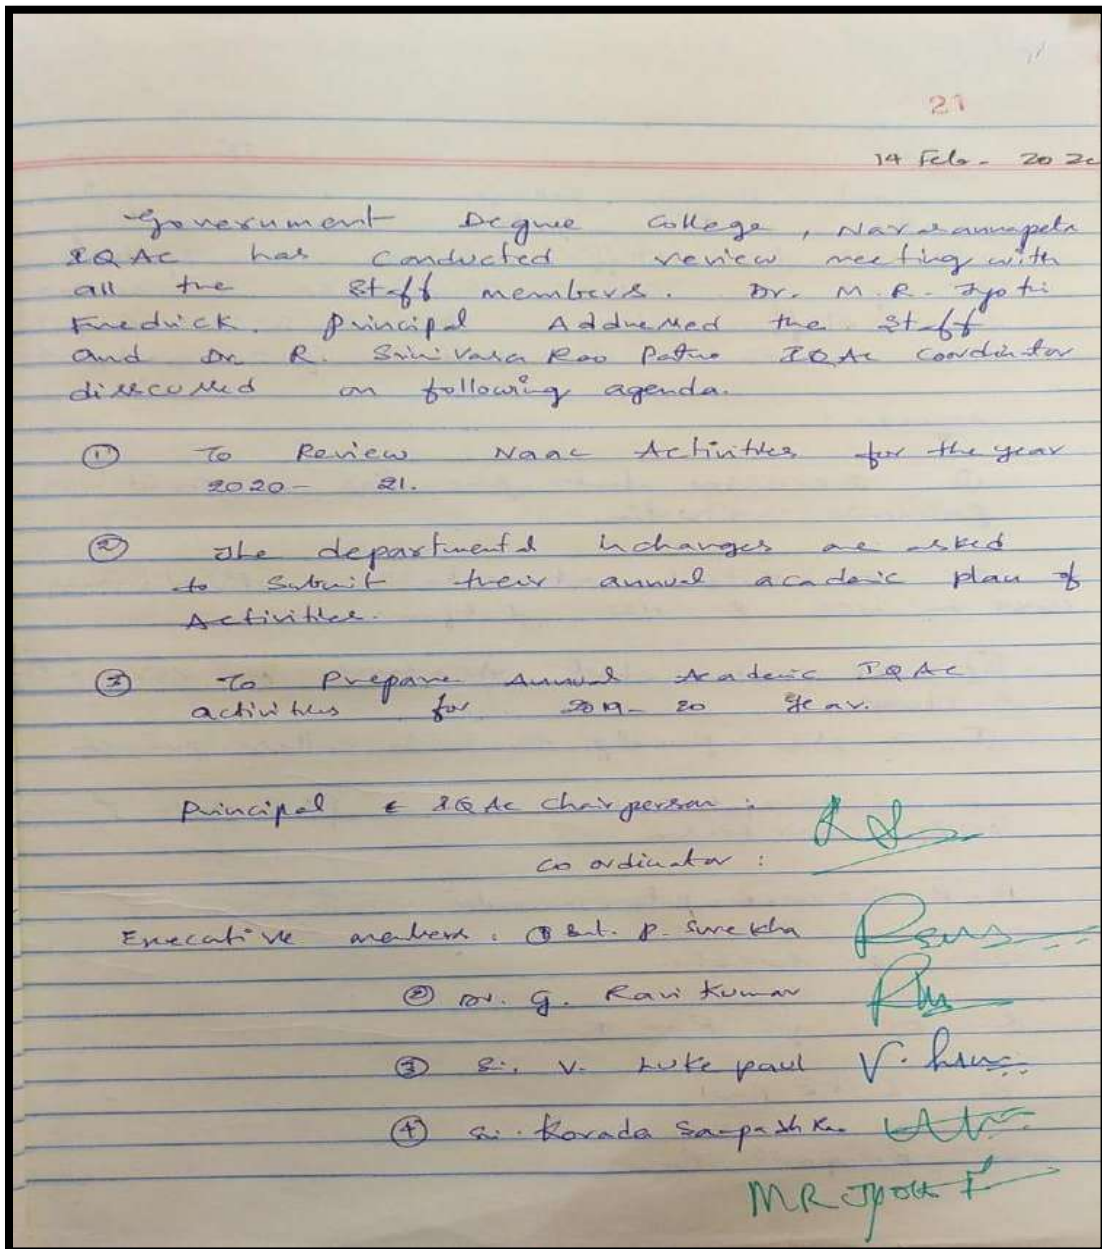 21
14 Feb - 202
Government Degree College, Narasannapeta
IQAC has conducted review meeting with
all the staff members. Dr. M. R. Jyoti
Fredrick. Principal Addressed the staff
and Dr R. Srinivasa Rao Patno IQAC coordinator
disscussed on following agenda.
① To Review Naac Activities for the year
2020 - 21.
② The departmental Incharges are asked
to Submit their annual academic plan of
Activities.
③ To Prepare Annual Academic IQAC
activities for 2019 - 20 year.
Principal & IQAC Chairperson :
Co ordinator :
Executive members : ① Smt. P. Surekha
② Dr. G. Ravi Kumar
③ Sri. V. Luke paul
④ Sri. Korada
MR Jyoti F